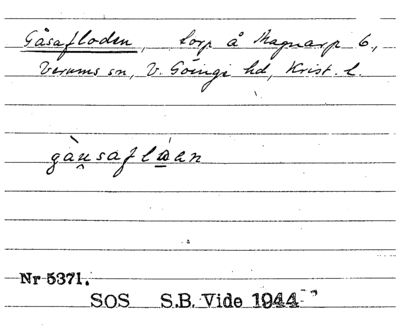 Gåsafloden, torp å Magnarp 6,
Verums sn, V. Göingi hd, Krist. l.
gàu̯safla̱an
Nr 5371.
SOS S.B. Vide 1944